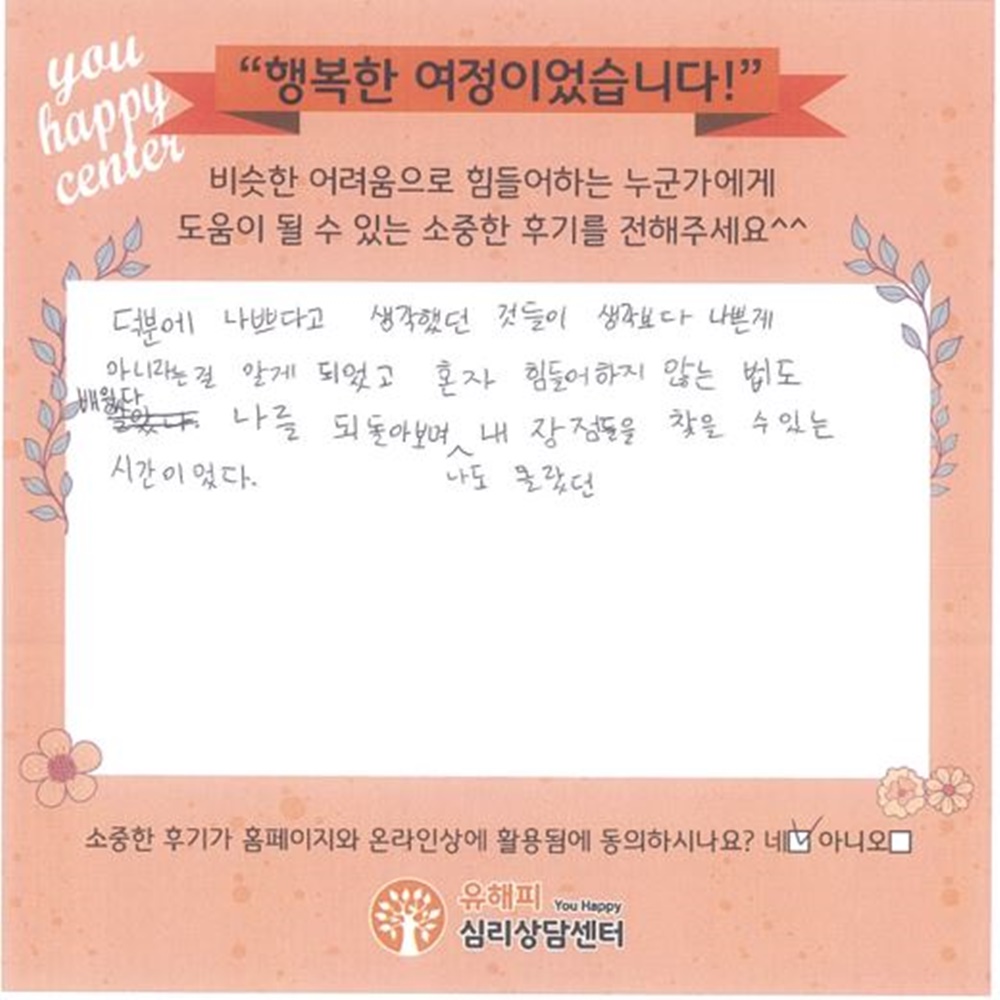 you
happy
center
“행복한 여정이었습니다!”
비슷한 어려움으로 힘들어하는 누군가에게
도움이 될 수 있는 소중한 후기를 전해주세요^^
덕분에 나쁘다고 생각했던 것들이 생각보다 나쁜게
아니라는걸 알게 되었고 혼자 힘들어하지 않는 법도
배웠다
나를 되돌아보며 내 장점들을 찾을 수 있는
나도 몰랐던
시간이었다.
소중한 후기가 홈페이지와 온라인상에 활용됨에 동의하시나요? 네 아니오
유해피 You Happy
심리상담센터